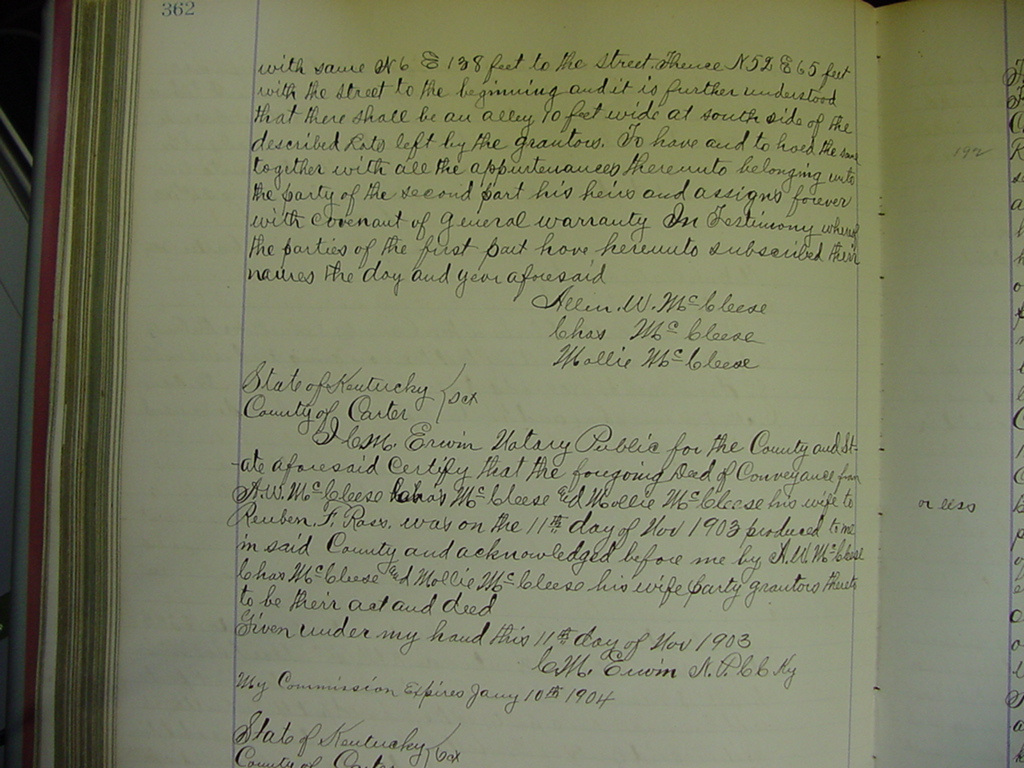 362
with same N 6 E 138 feet to the street. Thence N 52 E 65 feet
with the street to the beginning and it is further understood
that there shall be an alley 10 feet wide at south side of the
described Lots left by the grantors. To have and to hold the same
together with all the appurtenances thereunto belonging unto
the party of the second part his heirs and assigns forever
with Covenant of General warranty In Testimony whereof
the parties of the first part have hereunto subscribed their
names the day and year aforesaid
Allen. W. McCleese
Chas McCleese
Mollie McCleese
State of Kentucky
County of Carter } Sct
I C.M. Erwin Notary Public for the County and St-
-ate aforesaid Certify that the foregoing Deed of Conveyance from
A.W. McCleese Chas McCleese &d Mollie McCleese his wife to
Reuben. F. Ross. was on the 11th day of Nov 1903 produced to me
in said County and acknowledged before me by A.W. McCleese
Chas McCleese &d Mollie McCleese his wife party grantors thereto
to be their act and deed
Given under my hand this 11th day of Nov 1903
C.M. Erwin N.P.C.C Ky
My Commission Expires Jany 10th 1904
State of Kentucky
County of Carter } Sct
192
or less